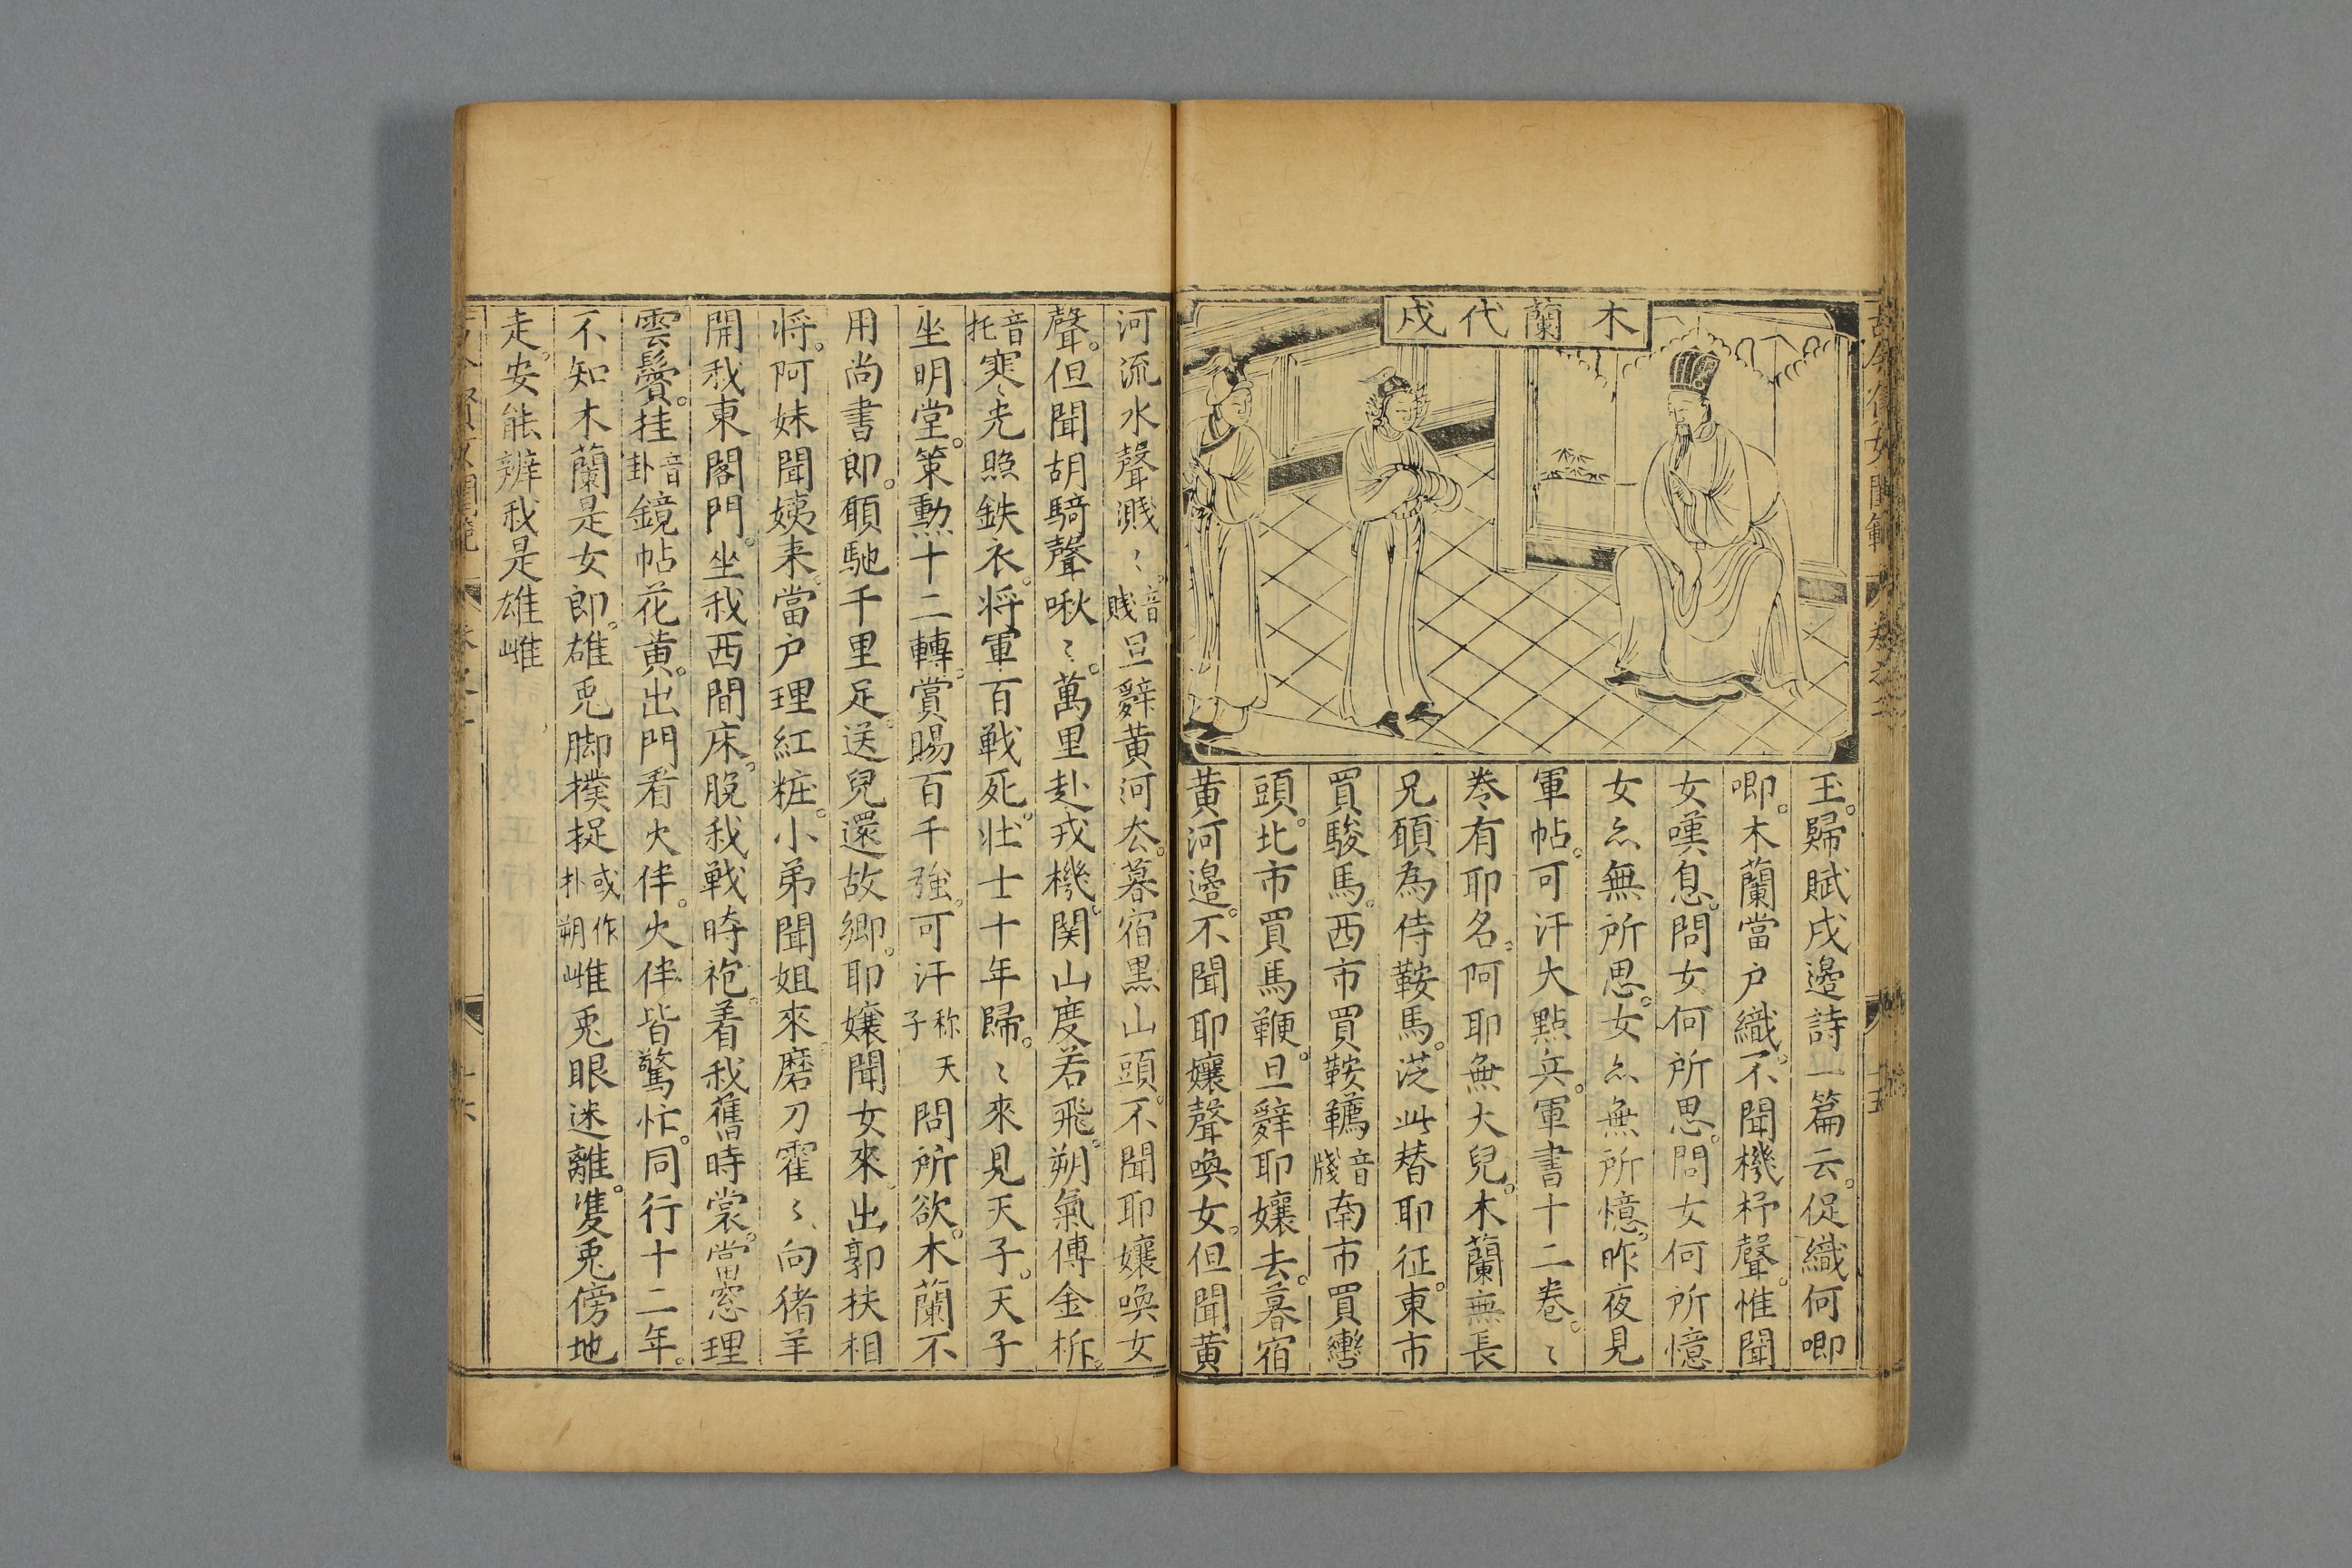 木蘭代戍
玉。歸賦戍邊詩一篇云。促織何唧
唧。木蘭當户織。不聞機杼聲。惟聞
女嘆息。問女何所思。問女何所憶
女亦無所思。女亦無所憶。昨夜見
軍帖。可汗大點兵。軍書十二卷。〻
卷有耶名。阿耶無大兒。木蘭無長
兄。願為侍鞍馬。從此替耶征。東市
買駿馬。西市買鞍韉音牋南市買轡
頭。北市買馬鞭。旦辭耶孃去。暮宿
黄河邊。不聞耶孃聲喚女。但聞黄
河流水聲濺〻。音賤旦辭黄河去。暮宿黒山頭。不聞耶孃喚女
聲。但聞胡騎聲啾〻。萬里赴戎機。関山度若飛。朔氣傅金柝。
音托寒光照鉄衣。将軍百戦死。壯士十年歸。〻來見天子。天子
坐明堂。策勲十二轉。賞賜百千強。可汗称天子問所欲。木蘭不
用尚書郎。願馳千里足。送兒還故鄉。耶孃聞女來。出郭扶相
将。阿妹聞姨来。當户理紅粧。小弟聞姐來。磨刀霍〻向猪羊
開我東閣門。坐我西間床。脫我戦時袍。着我舊時裳。當窓理
雲鬢。挂音卦鏡帖花黄。出門看火伴。火伴皆驚忙。同行十二年。
不知木蘭是女郎。雄兎脚撲捉或作扑朔雌兎眼迷離。雙兎傍地
走。安能辨我是雄雌